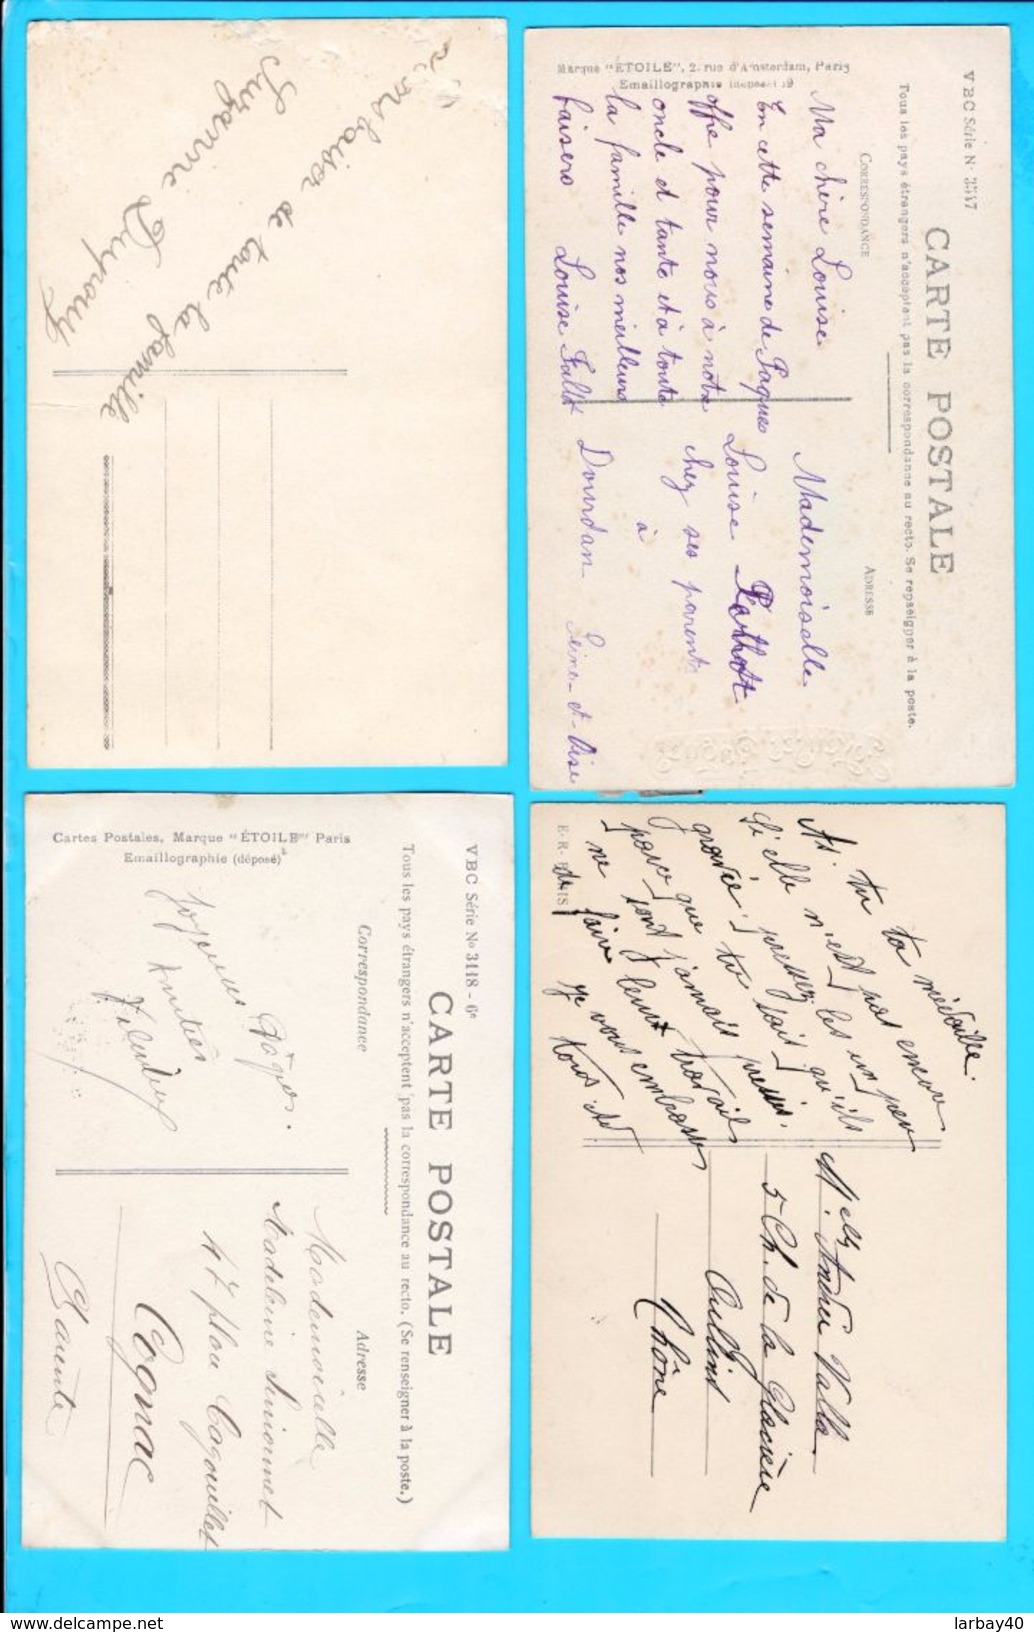 baiser de toute la famille
Suzanne Dupouy
Marque "ÉTOILE", 2. rue d'Amsterdam, Paris
Emaillographie (déposé) 19
VBC Série N· 3547
CARTE POSTALE
Tous les pays étrangers n'acceptent pas la correspondance au recto. Se renseigner à la poste.
CORRESPONDANCE
ADRESSE
Ma chère Louise
En cette semaine de Paques
offre pour nous à notre
oncle et tante et à toute
la famille nos meilleurs
baisers Louise Fallot
Mademoiselle
Louise
chez ses parents
à
Dourdan
Seine-et-Oise
Cartes Postales, Marque "ÉTOILE" Paris
Emaillographie (déposé)
VBC Série No 3118 - 6e
CARTE POSTALE
Tous les pays étrangers n'acceptent pas la correspondance au recto. (Se renseigner à la poste.)
Correspondance
Adresse
Joyeuses Pâques
Amitiés
Mademoiselle
Madeleine
47 place Cagouillet
Cognac
Charente
E. R. PARIS
As tu ta médaille.
Si elle n'est pas encore
gravée, pressez les un peu
parce que tu sais qu'ils
ne sont jamais pressés.
de faire leurs travails
je vous embrasse
tous
Melle Andrée Valla
5 Ch. de la Glacière
Oullins
Rhône
larbay40